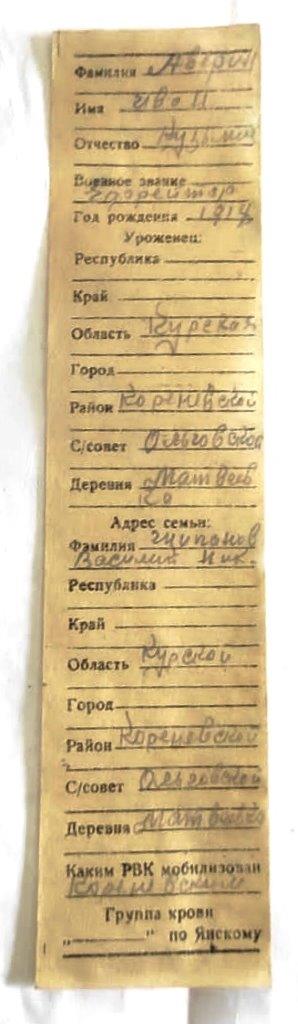 Фамилия Аверин
Имя Иван
Отчество Кузьмич
Военное звание
Ефрейтор
Год рождения 1914
Уроженец:
Республика
Край
Область Курская
Город
Район Кореневской
С/совет Ольговской
Деревня Матвев
ка
Адрес семьи:
Фамилия
Василий Ник.
Республика
Край
Область Курской
Город
Район Кореневской
С/совет Ольговской
Деревня Матвевка
Каким РВК мобилизован
Кореневским
Группа крови
„ " по Янскому